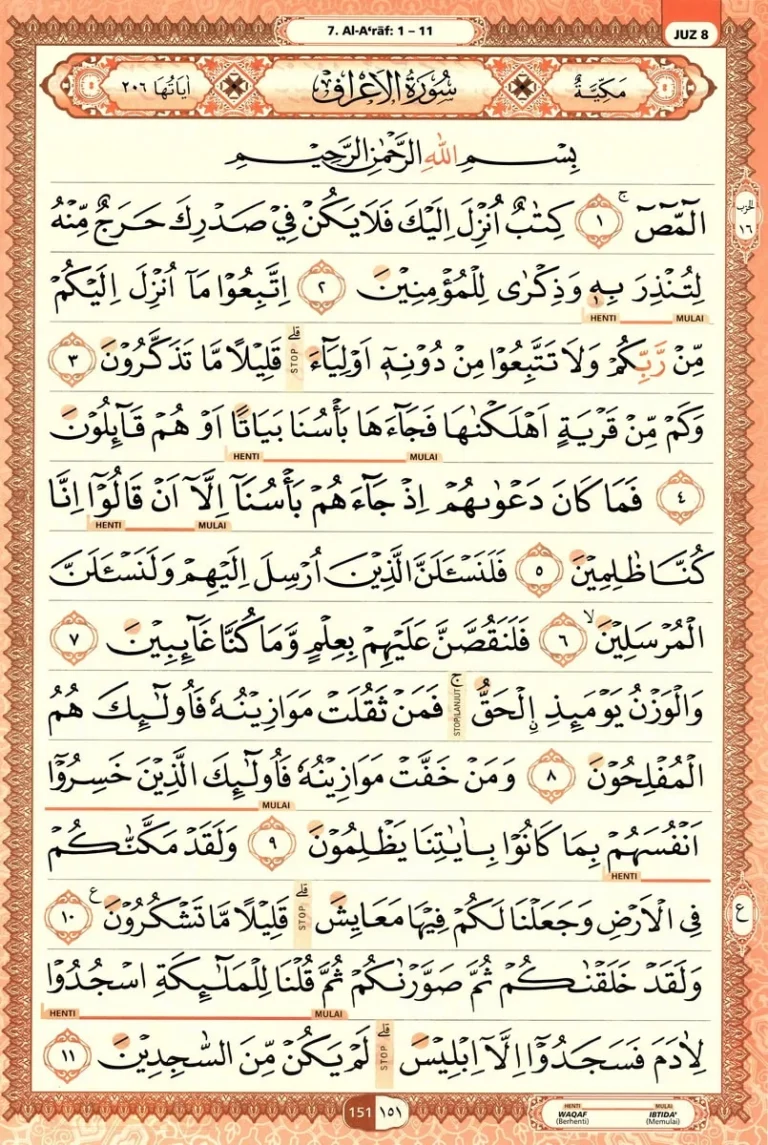 7. Al-A‘rāf: 1 – 11
JUZ 8
مَكِّيَّةٌ
سُوْرَةُ الْاَعْرَافِ
اٰيَاتُهَا ٢٠٦
بِسْمِ اللّٰهِ الرَّحْمٰنِ الرَّحِيْمِ
الحزب
١٦
الۤمّۤصۤ ۚ ١ كِتٰبٌ اُنْزِلَ اِلَيْكَ فَلَا يَكُنْ فِيْ صَدْرِكَ حَرَجٌ مِّنْهُ
لِتُنْذِرَ بِهٖ وَذِكْرٰى لِلْمُؤْمِنِيْنَ ٢ اِتَّبِعُوْا مَآ اُنْزِلَ اِلَيْكُمْ
HENTI MULAI
مِّنْ رَّبِّكُمْ وَلَا تَتَّبِعُوْا مِنْ دُوْنِهٖٓ اَوْلِيَاۤءَ ۗ قَلِيْلًا مَّا تَذَكَّرُوْنَ ٣
STOP
وَكَمْ مِّنْ قَرْيَةٍ اَهْلَكْنٰهَا فَجَاۤءَهَا بَأْسُنَا بَيَاتًا اَوْ هُمْ قَاۤىِٕلُوْنَ
HENTI MULAI
٤ فَمَا كَانَ دَعْوٰىهُمْ اِذْ جَاۤءَهُمْ بَأْسُنَآ اِلَّآ اَنْ قَالُوْٓا اِنَّا
HENTI MULAI
كُنَّا ظٰلِمِيْنَ ٥ فَلَنَسْـَٔلَنَّ الَّذِيْنَ اُرْسِلَ اِلَيْهِمْ وَلَنَسْـَٔلَنَّ
الْمُرْسَلِيْنَ ۙ ٦ فَلَنَقُصَّنَّ عَلَيْهِمْ بِعِلْمٍ وَّمَا كُنَّا غَاۤىِٕبِيْنَ ٧
وَالْوَزْنُ يَوْمَىِٕذِ ِۨالْحَقُّ ۚ فَمَنْ ثَقُلَتْ مَوَازِيْنُهٗ فَاُولٰۤىِٕكَ هُمُ
STOP/LANJUT
الْمُفْلِحُوْنَ ٨ وَمَنْ خَفَّتْ مَوَازِيْنُهٗ فَاُولٰۤىِٕكَ الَّذِيْنَ خَسِرُوْٓا
MULAI
اَنْفُسَهُمْ بِمَا كَانُوْا بِاٰيٰتِنَا يَظْلِمُوْنَ ٩ وَلَقَدْ مَكَّنّٰكُمْ
HENTI
فِى الْاَرْضِ وَجَعَلْنَا لَكُمْ فِيْهَا مَعَايِشَ ۗ قَلِيْلًا مَّا تَشْكُرُوْنَ ࣖ ١٠
STOP
ع
وَلَقَدْ خَلَقْنٰكُمْ ثُمَّ صَوَّرْنٰكُمْ ثُمَّ قُلْنَا لِلْمَلٰۤىِٕكَةِ اسْجُدُوْا
HENTI MULAI
لِاٰدَمَ فَسَجَدُوْٓا اِلَّآ اِبْلِيْسَ ۗ لَمْ يَكُنْ مِّنَ السّٰجِدِيْنَ ١١
STOP
151 ١٥١
HENTI MULAI
WAQAF IBTIDA'
(Berhenti) (Memulai)